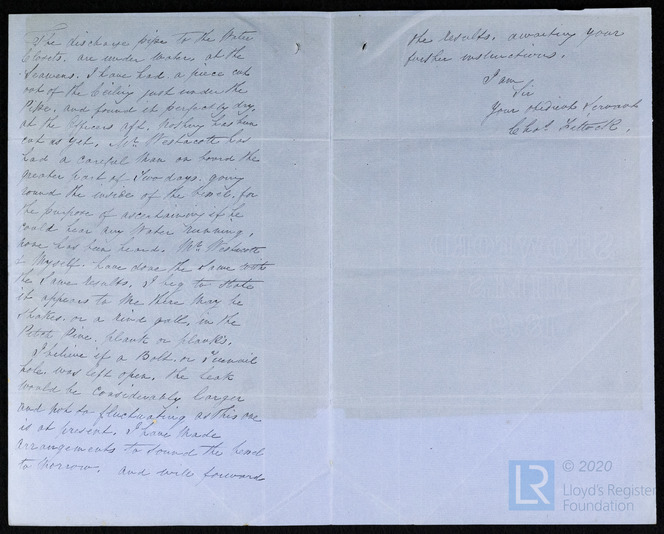 The discharge pipe to the Water
Closets. are under water at the
Seavens. I have had a piece cut
out of the Ceiling just under the
Pipe. and found it perfectly dry,
at the Officers aft. Nothing has been
cut as yet. Mr. Westacott has
had a careful Man on board the
greater part of Two days. going
round the inside of the Vessel. for
the purpose of ascertaining if he
could hear any Water running,
none has been heard. Mr. Westacott
& Myself. have done the same with
the same results. I beg to state
it appears to me there may be
Shakes. or a rind gall, in the
Pitch Pine. plank or planks.
I believe if a Bolt. or Treenail
hole. was left open. the leak
would be considerably larger
and not so fluctuating as this one
is at present. I have made
arrangements to sound the Vessel
to morrow. and will forward
the results. awaiting your
further instructions.
I am
Sir
Your obedient Servant
Chas.
© 2020
LR Lloyd's Register
Foundation